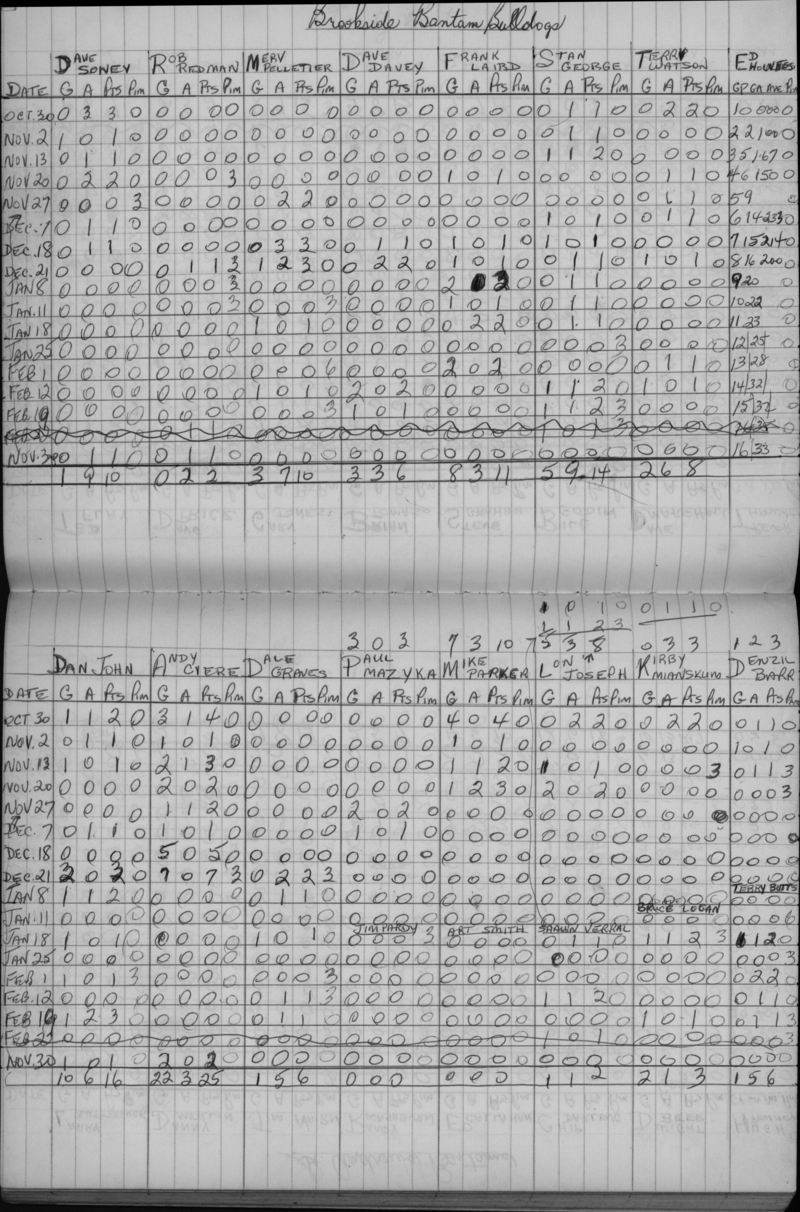 Brookside Bantam Bulldogs
DAVE SONEY ROB REDMAN MERV PELLETIER DAVE DAVEY FRANK LAIRD STAN GEORGE TERRY WATSON ED
DATE G A Pts Pim G A Pts Pim G A Pts Pim G A Pts Pim G A Pts Pim G A Pts Pim G A Pts Pim GP GA AVE Pim
OCT.30 0 3 3 0 0 0 0 0 0 0 0 0 0 0 0 0 0 0 0 0 0 1 1 0 0 2 2 0 1 0 0 0 0 0
NOV.2 1 0 1 0 0 0 0 0 0 0 0 0 0 0 0 0 0 0 0 0 0 1 1 0 0 0 0 0 2 2 1 00 0
NOV.13 0 1 1 0 0 0 0 0 0 0 0 0 0 0 0 0 0 0 0 0 1 1 2 0 0 0 0 0 3 5 1 67 0
NOV 20 0 2 2 0 0 0 0 3 0 0 0 0 0 0 0 0 1 0 1 0 0 0 0 0 0 1 1 0 4 6 1 50 0
NOV 27 0 0 0 3 0 0 0 0 0 2 2 0 0 0 0 0 0 0 0 0 0 0 0 0 0 1 1 0 5 9
DEC.7 0 1 1 0 0 0 0 0 0 0 0 0 0 0 0 0 0 0 0 0 1 0 1 0 0 1 1 0 6 14 2 33 0
DEC.18 0 1 1 0 0 0 0 0 0 3 3 0 0 1 1 0 1 0 1 0 1 0 1 0 0 0 0 0 7 15 2 14 0
DEC.21 0 0 0 0 0 1 1 3 1 2 3 0 0 2 2 0 1 0 1 0 0 1 1 0 1 0 1 0 8 16 2 00 0
JAN 8 0 0 0 0 0 0 0 3 0 0 0 0 0 0 0 0 2 0 2 0 0 1 1 0 0 0 0 0 9 20
JAN.11 0 0 0 0 0 0 0 3 0 0 0 3 0 0 0 0 1 0 1 0 0 1 1 0 0 0 0 0 10 22
JAN 18 0 0 0 0 0 0 0 0 1 0 1 0 0 0 0 0 0 2 2 0 0 1 1 0 0 0 0 0 11 23
JAN.25 0 0 0 0 0 0 0 0 0 0 0 0 0 0 0 0 0 0 0 0 0 0 0 3 0 0 0 0 12 25
FEB 1 0 0 0 0 0 0 0 0 0 0 0 6 0 0 0 0 2 0 2 0 0 0 0 0 0 1 1 0 13 28
FEB.12 0 0 0 0 0 0 0 0 1 0 1 0 2 0 2 0 0 0 0 0 1 1 2 0 1 0 1 0 14 32
FEB.19 0 0 0 0 0 0 0 0 0 0 0 3 1 0 1 0 0 0 0 0 1 1 2 3 0 0 0 0 15
NOV.30 0 1 1 0 0 1 1 0 0 0 0 0 0 0 0 0 0 0 0 0 0 0 0 0 0 0 0 0 16 33
1 9 10 0 2 2 3 7 10 3 3 6 8 3 11 5 9 14 2 6 8
1 0 1 0 0 1 1 0
1 1 2 3
3 0 3 7 3 10 7 3 3 8 0 3 3 1 2 3
DAN JOHN ANDY CYERE DALE GRAVES PAUL MAZYKA MIKE PARKER LON JOSEPH KIRBY MIANSKUM DENZIL BARR
DATE G A Pts Pim G A Pts Pim G A Pts Pim G A Pts Pim G A Pts Pim G A Pts Pim G A Pts Pim G A Pts Pim
OCT 30 1 1 2 0 3 1 4 0 0 0 0 0 0 0 0 0 4 0 4 0 0 2 2 0 0 2 2 0 0 1 1 0
NOV.2 0 1 1 0 1 0 1 0 0 0 0 0 0 0 0 0 1 0 1 0 0 0 0 0 0 0 0 0 1 0 1 0
NOV.13 1 0 1 0 2 1 3 0 0 0 0 0 0 0 0 0 1 1 2 0 1 0 1 0 0 0 0 3 0 1 1 3
NOV.20 0 0 0 0 2 0 2 0 0 0 0 0 0 0 0 0 1 2 3 0 2 0 2 0 0 0 0 0 0 0 0 3
NOV 27 0 0 0 0 1 1 2 0 0 0 0 0 2 0 2 0 0 0 0 0 0 0 0 0 0 0 0 0 0 0 0 0
DEC.7 0 1 1 0 1 0 1 0 0 0 0 0 1 0 1 0 0 0 0 0 0 0 0 0 0 0 0 0 0 0 0 0
DEC.18 0 0 0 0 5 0 5 0 0 0 0 0 0 0 0 0 0 0 0 0 0 0 0 0 0 0 0 0 0 0 0 0
DEC.21 2 0 2 0 7 0 7 3 0 2 2 3 0 0 0 0 0 0 0 0 0 0 0 0 0 0 0 0 0 0 0 0
TERRY BUTTS
JAN 8 1 1 2 0 0 0 0 0 0 1 1 0 0 0 0 0 0 0 0 0 0 0 0 0 0 0 0 0 0 0 0 0
BRUCE LOGAN
JAN.11 0 0 0 0 0 0 0 0 0 0 0 0 0 0 0 0 0 0 0 0 0 0 0 0 0 0 0 0 0 0 0 6
JIM PARDY ART SMITH SHAWN VERRAL
JAN 18 1 0 1 0 0 0 0 0 1 0 1 0 0 0 0 3 0 0 0 0 0 1 1 0 1 1 2 3 1 1 2 0
JAN 25 0 0 0 0 0 0 0 0 0 0 0 0 0 0 0 0 0 0 0 0 0 0 0 0 0 0 0 0 0 0 0 3
FEB 1 1 0 1 3 0 0 0 0 0 0 0 3 0 0 0 0 0 0 0 0 0 0 0 0 0 0 0 0 0 2 2 0
FEB.12 0 0 0 0 0 0 0 0 0 1 1 3 0 0 0 0 0 0 0 0 1 1 2 0 0 0 0 0 0 1 1 0
FEB 19 1 2 3 0 0 0 0 0 0 1 1 0 0 0 0 0 0 0 0 0 0 0 0 0 1 0 1 0 0 1 1 3
FEB 22 0 0 0 0 0 0 0 0 0 0 0 0 0 0 0 0 0 0 0 0 1 0 1 0 0 0 0 0 0 0 0 3
NOV.30 1 0 1 0 2 0 2 0 0 0 0 0 0 0 0 0 0 0 0 0 0 0 0 0 0 0 0 0 0 0 0 0
10 6 16 22 3 25 1 5 6 0 0 0 0 0 0 1 1 2 2 1 3 1 5 6